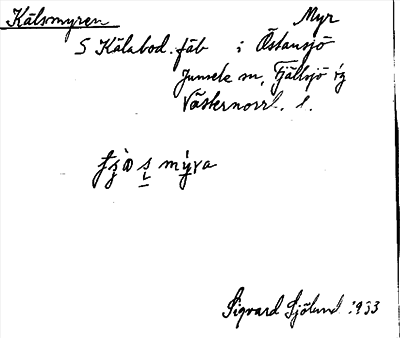 Kälsmyren Myr
S Kälabod. fäb i Östansjö
Junsele sn, Fjällsjö tg
Västernorrl. l.
mỳra
Sigvard Sjölund 1933